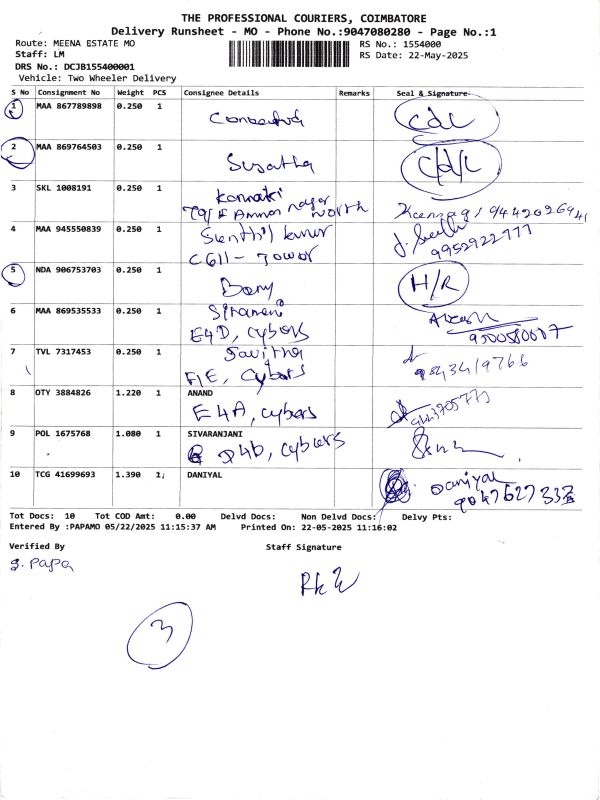 THE PROFESSIONAL COURIERS, COIMBATORE
Delivery Runsheet - MO - Phone No.:9047080280 - Page No.:1
Route: MEENA ESTATE MO RS No.: 1554000
Staff: LM RS Date: 22-May-2025
DRS No.: DCJB155400001
Vehicle: Two Wheeler Delivery
S No Consignment No Weight PCS Consignee Details Remarks Seal & Signature
1 MAA 867789898 0.250 1 CdL
2 MAA 869764503 0.250 1 Sujatha C/d/L
3 SKL 1008191 0.250 1 Kannaki
Ammon nagar North 9442026941
4 MAA 945550839 0.250 1 Senthil kumar
C611 - Tower 9952922777
5 NDA 906753703 0.250 1 H/R
6 MAA 869535533 0.250 1
E4D, Cybers
7 TVL 7317453 0.250 1 Savitha
F1E, Cybers 9843419766
8 OTY 3884826 1.220 1 ANAND
E4A, cybers
9 POL 1675768 1.080 1 SIVARANJANI
D4b, cybers
10 TCG 41699693 1.390 1 DANIYAL Daniyal
Tot Docs: 10 Tot COD Amt: 0.00 Delvd Docs: Non Delvd Docs: Delvy Pts:
Entered By :PAPAMO 05/22/2025 11:15:37 AM Printed On: 22-05-2025 11:16:02
Verified By Staff Signature
S. Papa
3